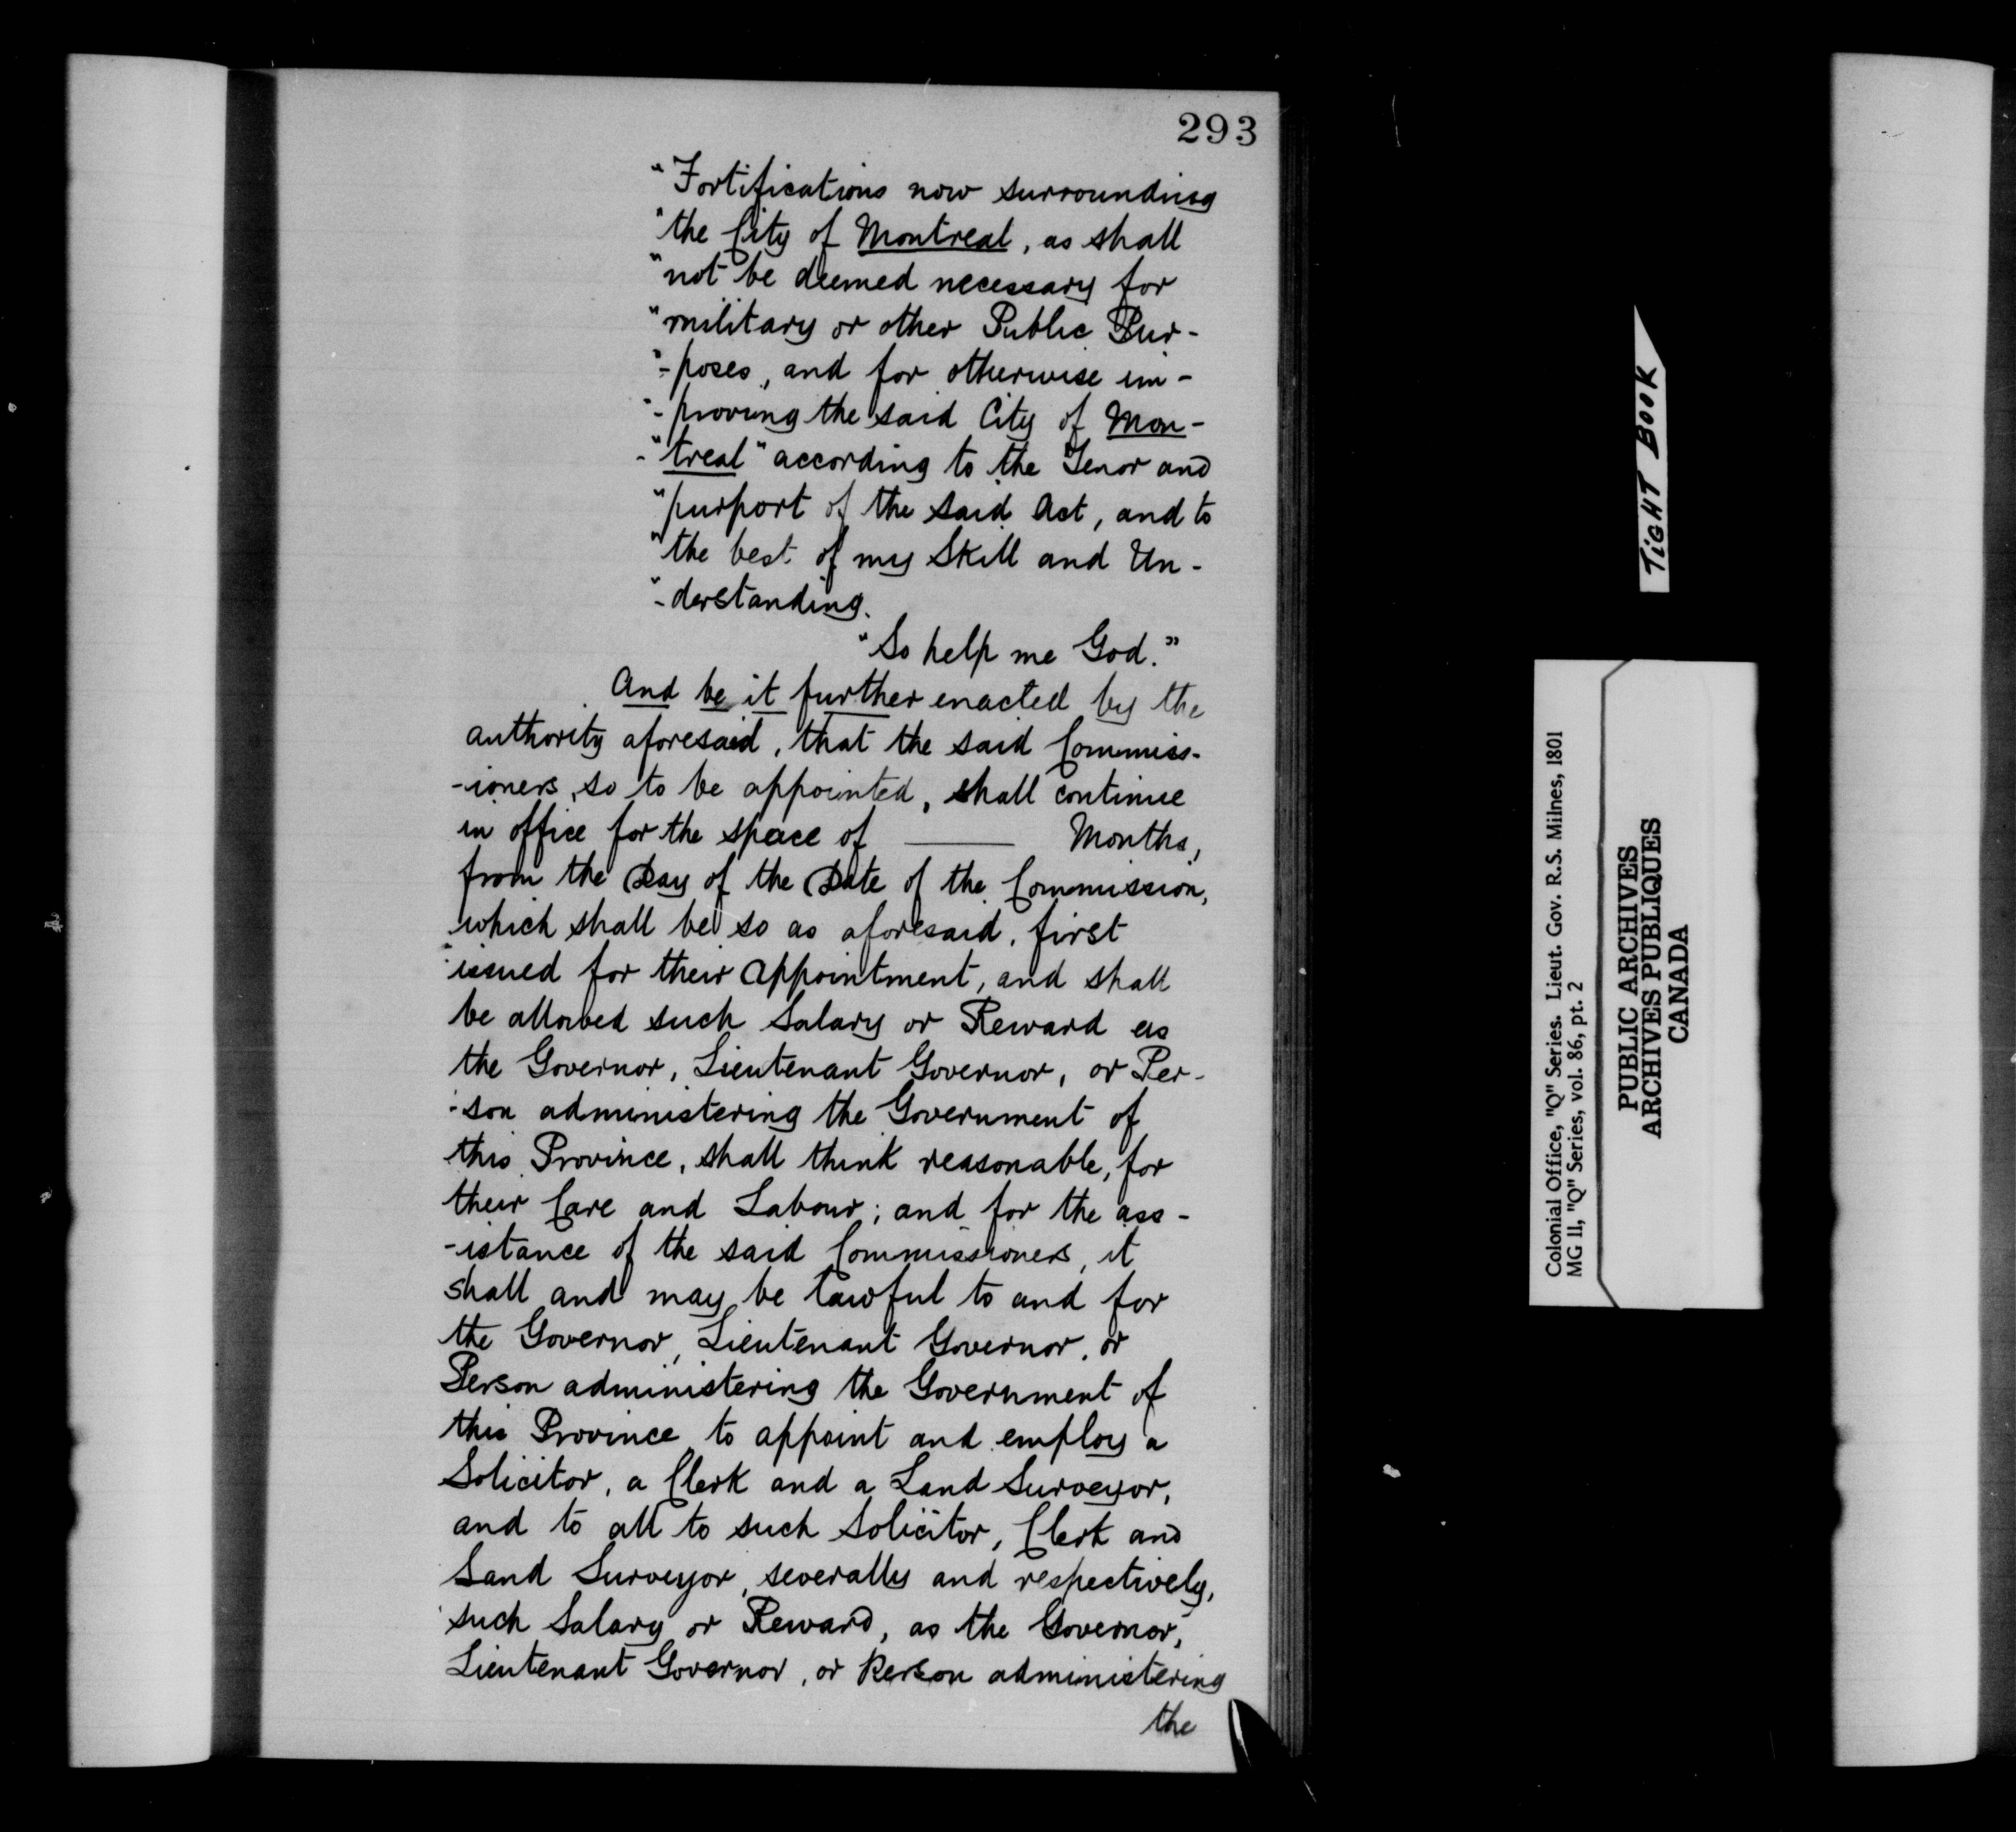 293
"Fortifications now surrounding
"the City of Montreal, as shall
"not be deemed necessary for
"military or other Public Pur-
"-poses, and for otherwise im-
"-proving the said City of Mon-
-"treal" according to the Tenor and
"purport of the said Act, and to
"the best of my Skill and Un-
"-derstanding.
"So help me God."
And be it further enacted by the
authority aforesaid, that the said Commiss-
-ioners, so to be appointed, shall continue
in office for the space of ——— Months,
from the Day of the Date of the Commission,
which shall be so as aforesaid, first
issued for their Appointment, and shall
be allowed such Salary or Reward as
the Governor, Lieutenant Governor, or Per-
-son administering the Government of
this Province, shall think reasonable, for
their Care and Labour; and for the ass-
-istance of the said Commissioners, it
shall and may be lawful to and for
the Governor, Lieutenant Governor, or
Person administering the Government of
this Province to appoint and employ a
Solicitor, a Clerk and a Land Surveyor,
and to all to such Solicitor, Clerk and
Land Surveyor, severally and respectively,
such Salary or Reward, as the Governor,
Lieutenant Governor, or Person administering
the
TIGHT BOOK
Colonial Office, "Q" Series. Lieut. Gov. R.S. Milnes, 1801
MG 11, "Q" Series, vol. 86, pt. 2
PUBLIC ARCHIVES
ARCHIVES PUBLIQUES
CANADA